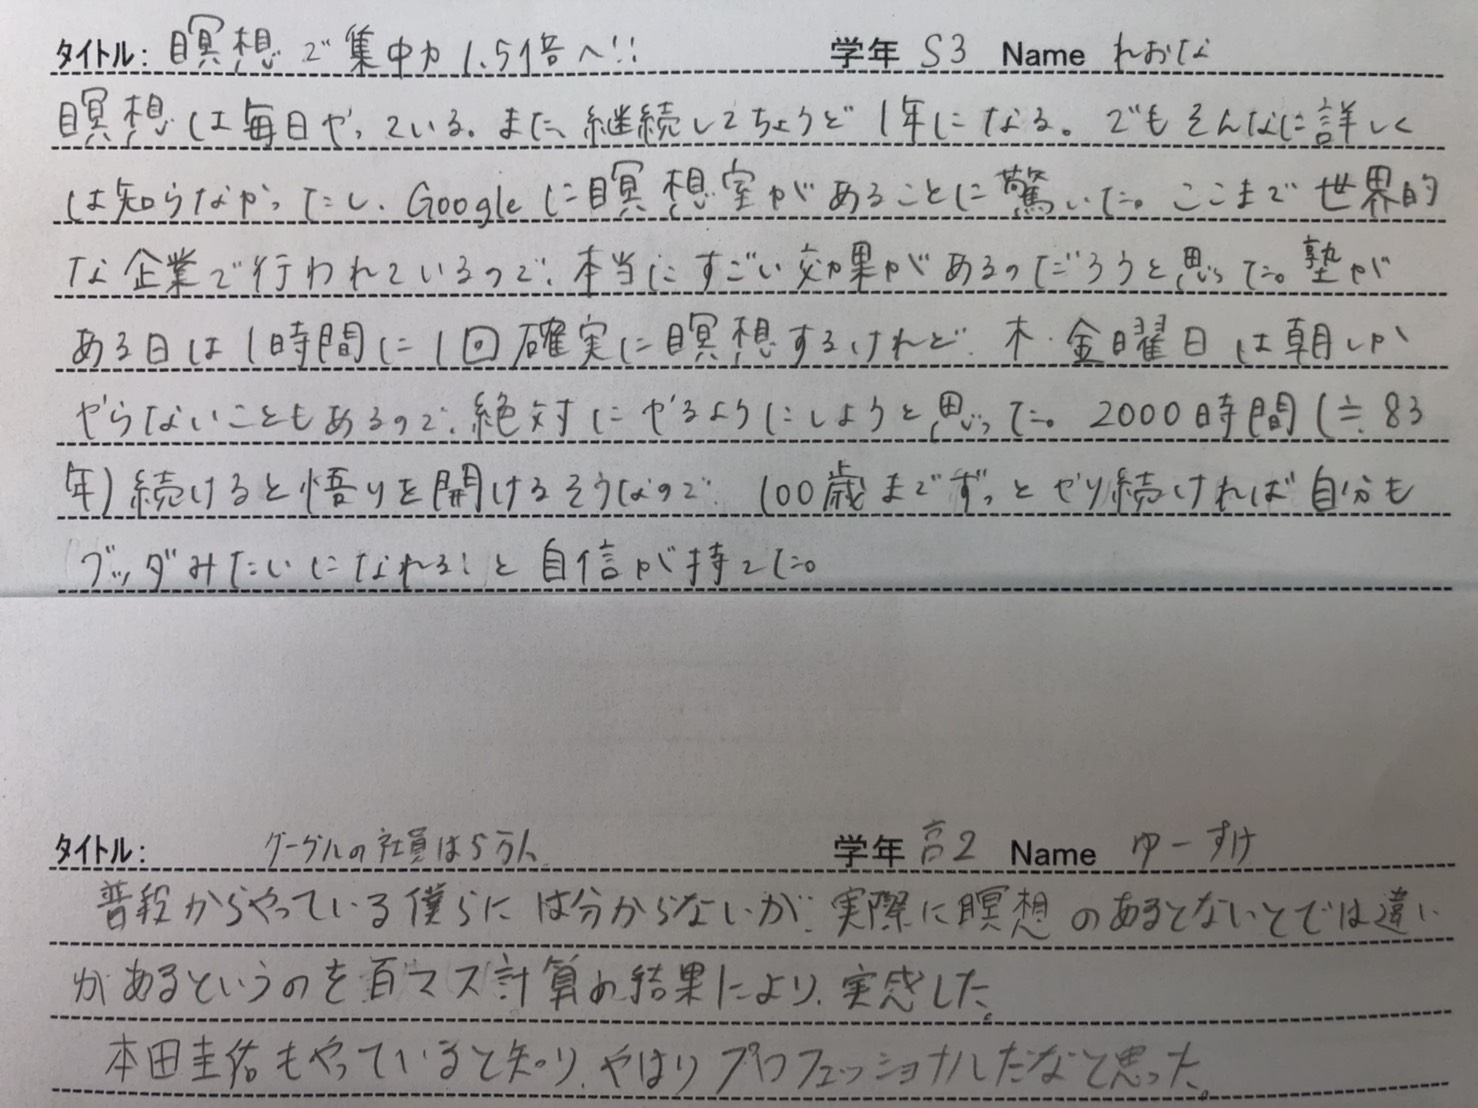 タイトル: 瞑想で集中力1.5倍へ!! 学年 S3 Name れおな
瞑想は毎日やっている。また、継続してちょうど1年になる。でもそんなに詳しく
は知らなかったし、Googleに瞑想室があることに驚いた。ここまで世界的
な企業で行われているので、本当にすごい効果があるのだろうと思った。塾が
ある日は1時間に1回確実に瞑想するけれど、木・金曜日は朝しか
やらないこともあるので、絶対にやるようにしようと思った。2000時間(≒83
年)続けると悟りを開けるそうなので、100歳までずっとやり続ければ自分も
ブッダみたいになれる!と自信が持てた。
タイトル: グーグルの社員は5万人 学年 高2 Name ゆーすけ
普段からやっている僕らには分からないが、実際に瞑想のあるとないとでは違い
があるというのを百マス計算の結果により、実感した。
本田圭佑もやっていると知り、やはりプロフェッショナルだなと思った。